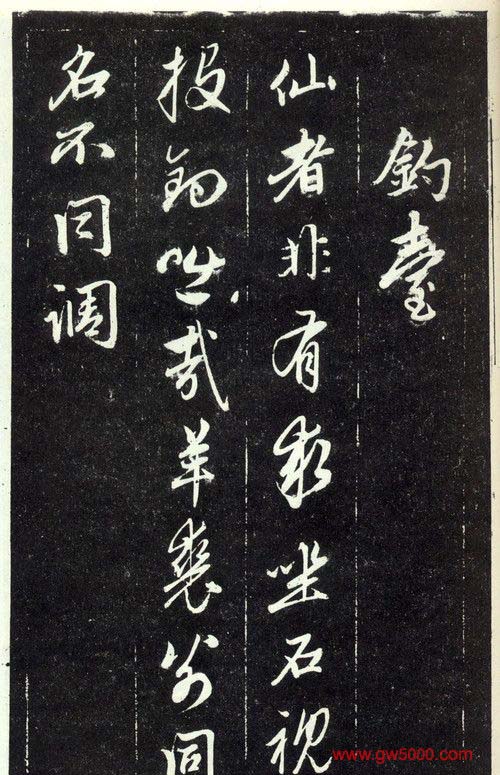 釣臺
仙者非有求坐石視
投釣咄哉羊裘翁同
名不同調
www.gw5000.com